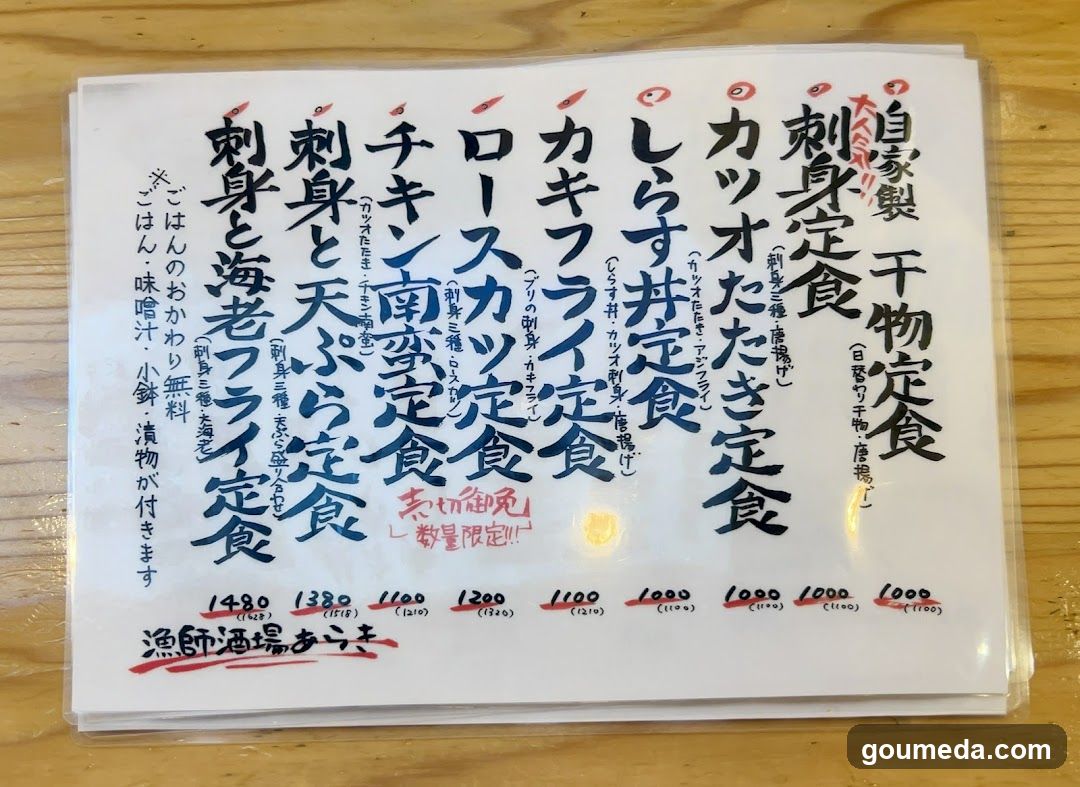 自家製 干物定食
(日替わり干物・唐揚げ)
1000
(1100)
大人気!!
刺身定食
(刺身三種・唐揚げ)
1000
(1100)
カツオたたき定食
(カツオたたき・アジフライ)
1000
(1100)
しらす丼定食
(しらす丼・カツオ刺身・唐揚げ)
1000
(1100)
カキフライ定食
(ブリの刺身・カキフライ)
1100
(1210)
ロースカツ定食
(刺身三種・ロースカツ)
1200
(1320)
チキン南蛮定食
(カツオたたき・チキン南蛮)
1100
(1210)
売切御免
数量限定!!!
刺身と天ぷら定食
(刺身三種・天ぷら盛り合わせ)
1380
(1518)
刺身と海老フライ定食
(刺身三種・大海老)
1480
(1628)
※ごはんのおかわり無料
ごはん・味噌汁・小鉢・漬物が付きます
漁師酒場あらき
goumeda.com